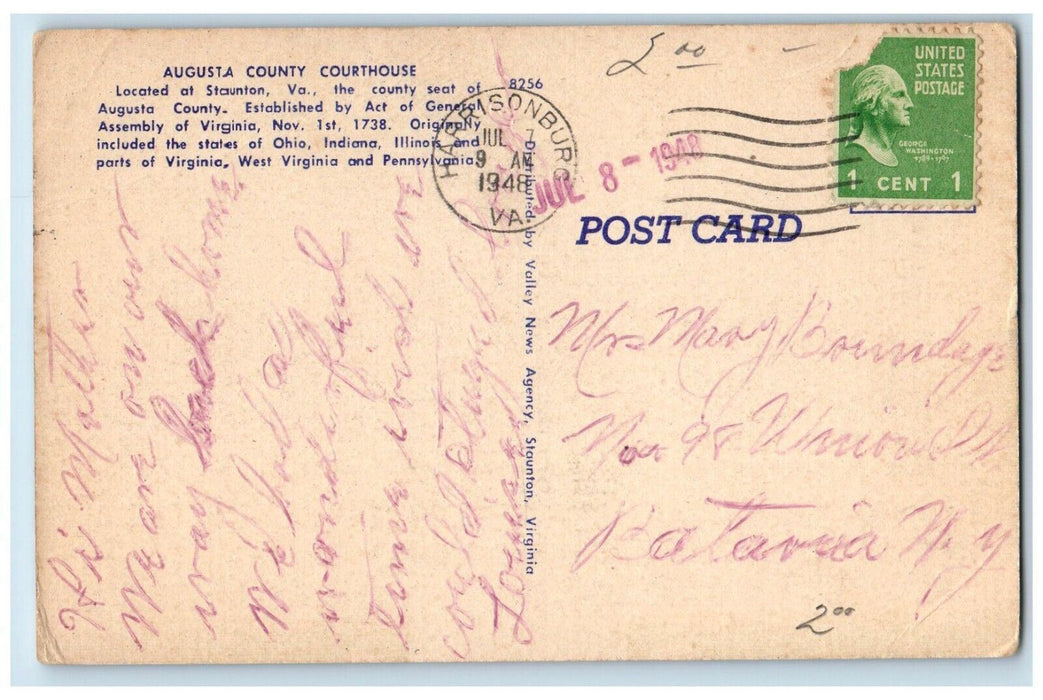 AUGUSTA COUNTY COURTHOUSE
Located at Staunton, Va., the county seat of
Augusta County. Established by Act of General
Assembly of Virginia, Nov. 1st, 1738. Originally
included the states of Ohio, Indiana, Illinois and
parts of Virginia, West Virginia and Pennsylvania.
8256
HARRISONBURG
JUL 7
9 AM
1948
VA.
JUL 8 - 1948
2 00
UNITED
STATES
POSTAGE
GEORGE
WASHINGTON
1789-1797
1 CENT 1
POST CARD
Distributed by Valley News Agency, Staunton, Virginia
Hi Mother
We are on our
way back home
We had a
wonderful
time wish we
could stayed longer
Louise
Mrs Mary Brundage
No 98 Union St
Batavia N.y
2 00